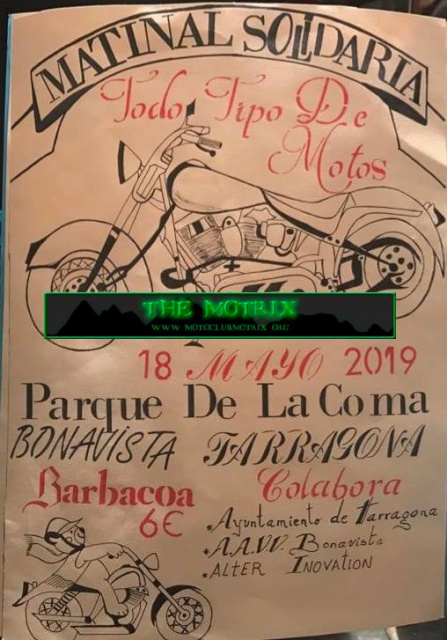 MATINAL SOLIDARIA
Todo Tipo De
Motos
THE MOTRIX
WWW.MOTOCLUBMOTRIX.ORG
18 MAYO 2019
Parque De La Coma
BONAVISTA TARRAGONA
Barbacoa
6€
Colabora
.Ayuntamiento de Tarragona
.A.A.V.V. Bonavista
.ALTER INOVATION